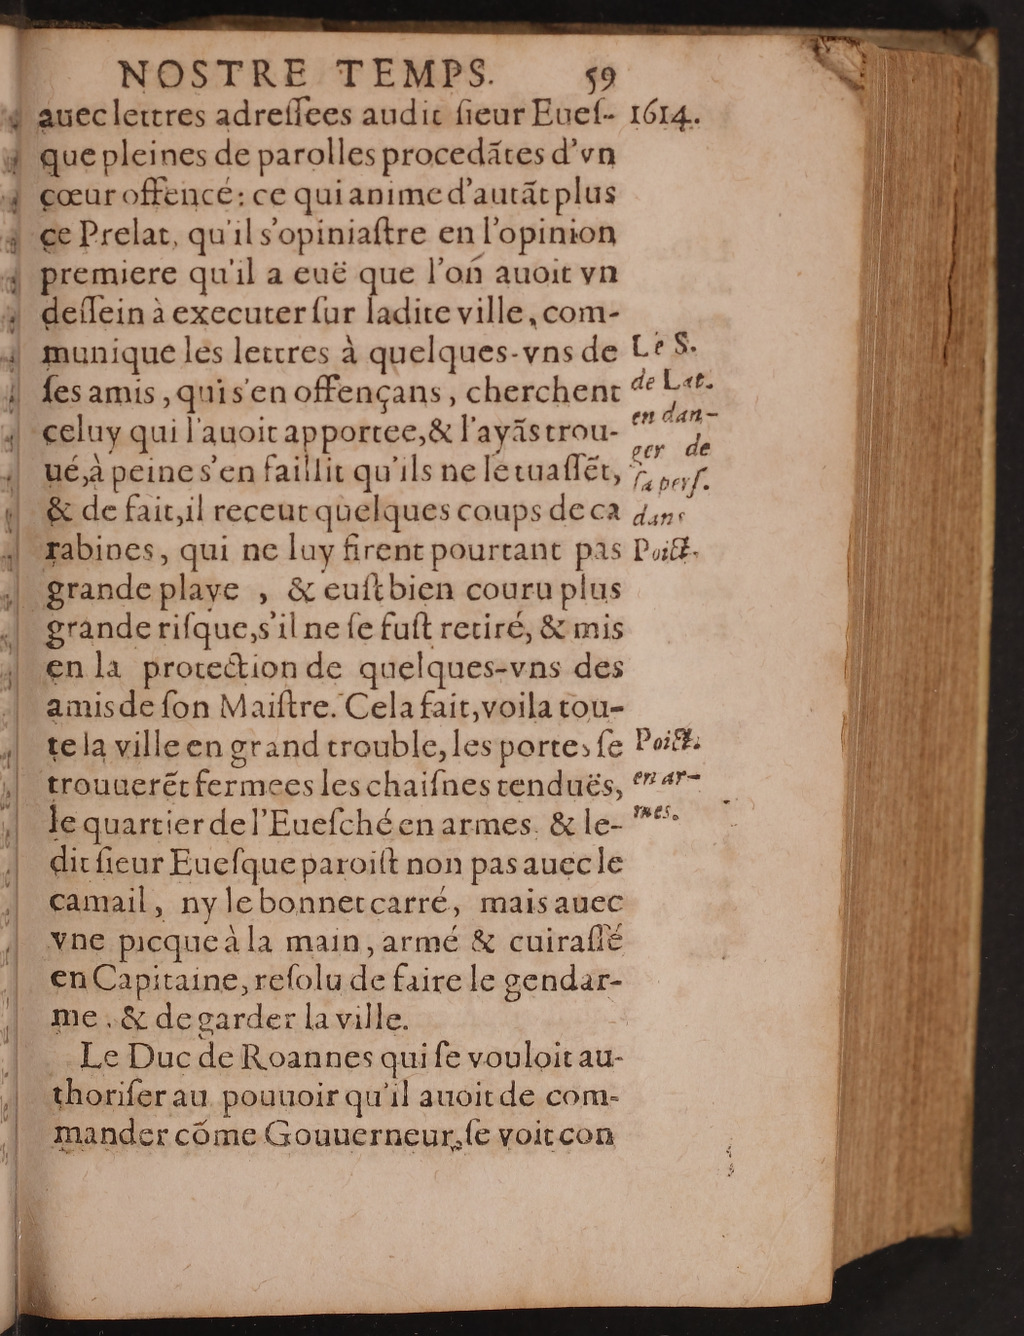 NOSTRE TEMPS. 59
auec lettres adreſſees audit ſieur Eueſ- 1614.
que pleines de parolles procedātes d'vn
cœur offencé: ce qui anime d'autāt plus
ce Prelat, qu'il s'opiniaſtre en l'opinion
premiere qu'il a euë que l'on auoit vn
deſſein à executer ſur ladite ville, com-
munique les lettres à quelques-vns de
ſes amis, qui s'en offençans, cherchent
celuy qui l'auoit apportee, & l'ayās trou-
ué, à peine s'en faillit qu'ils ne le tuaſſēt,
& de fait, il receut quelques coups de ca
rabines, qui ne luy firent pourtant pas
grande playe , & euſt bien couru plus
grande riſque, s'il ne ſe fuſt retiré, & mis
en la protection de quelques-vns des
amis de ſon Maiſtre. Cela fait, voila tou-
te la ville en grand trouble, les portes ſe
trouuerēt fermees les chaiſnes tenduës,
le quartier de l'Eueſché en armes. & le-
dit ſieur Eueſque paroiſt non pas auec le
camail, ny le bonnet carré, mais auec
vne picque à la main, armé & cuiraſſé
en Capitaine, reſolu de faire le gendar-
me, & de garder la ville.
Le Duc de Roannes qui ſe vouloit au-
thoriſer au pouuoir qu'il auoit de com-
mander cōme Gouuerneur, ſe voit con
Le S.
de Lat.
en dan-
ger de
ſa perſ.
dans
Poict.
Poict.
en ar-
mes.